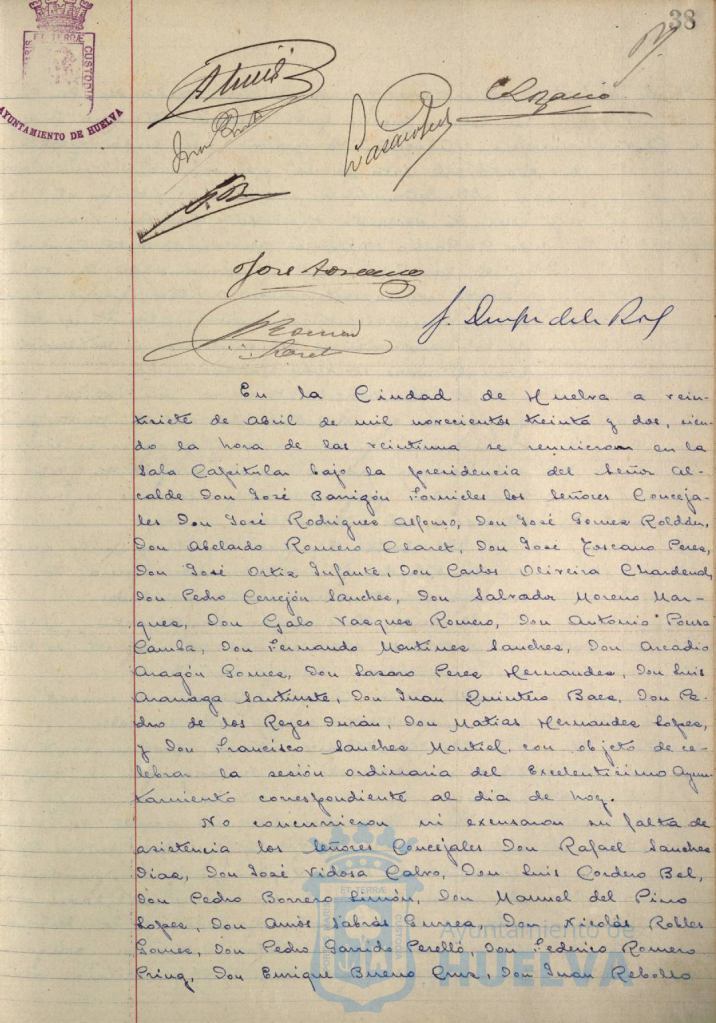 38
AYUNTAMIENTO DE HUELVA
José Toscano
En la Ciudad de Huelva a vein-
tisiete de Abril de mil novecientos treinta y dos, sien-
do la hora de las veintiuna se reunieron en la
Sala Capitular bajo la presidencia del Señor Al-
calde Don José Barrigón Fornieles los Señores Conceja-
les Don José Rodriguez Alfonso, Don José Gomez Roldán,
Don Abelardo Romero Claret, Don José Toscano Perez,
Don José Ortiz Infante, Don Carlos Oliveira Chardenal,
Don Pedro Cerrejón Sanchez, Don Salvador Moreno Mar-
quez, Don Galo Vazquez Romero, Don Antonio Ponce
Camba, Don Fernando Martinez Sanchez, Don Arcadio
Aragón Gomez, Don Lazaro Perez Hernandez, Don Luis
Aranaga Santiuste, Don Juan Quintero Baez, Don Pe-
dro de los Reyes Durán, Don Matias Hernandez Lopez,
y Don Francisco Sanchez Montiel, con objeto de ce-
lebrar la sesión ordinaria del Excelentisimo Ayun-
tamiento correspondiente al dia de hoy.
No concurrieron ni excusaron su falta de
asistencia los Señores Concejales Don Rafael Sanchez
Diaz, Don José Vidosa Calvo, Don Luis Cordero Bel,
Don Pedro Borrero Limón, Don Manuel del Pino
Lopez, Don Amós Sabrás Gurrea, Don Nicolás Robles
Gomez, Don Pedro Garrido Perelló, Don Federico Romero
Prinz, Don Enrique Bueno Cruz, Don Juan Rebollo
Ayuntamiento de
HUELVA